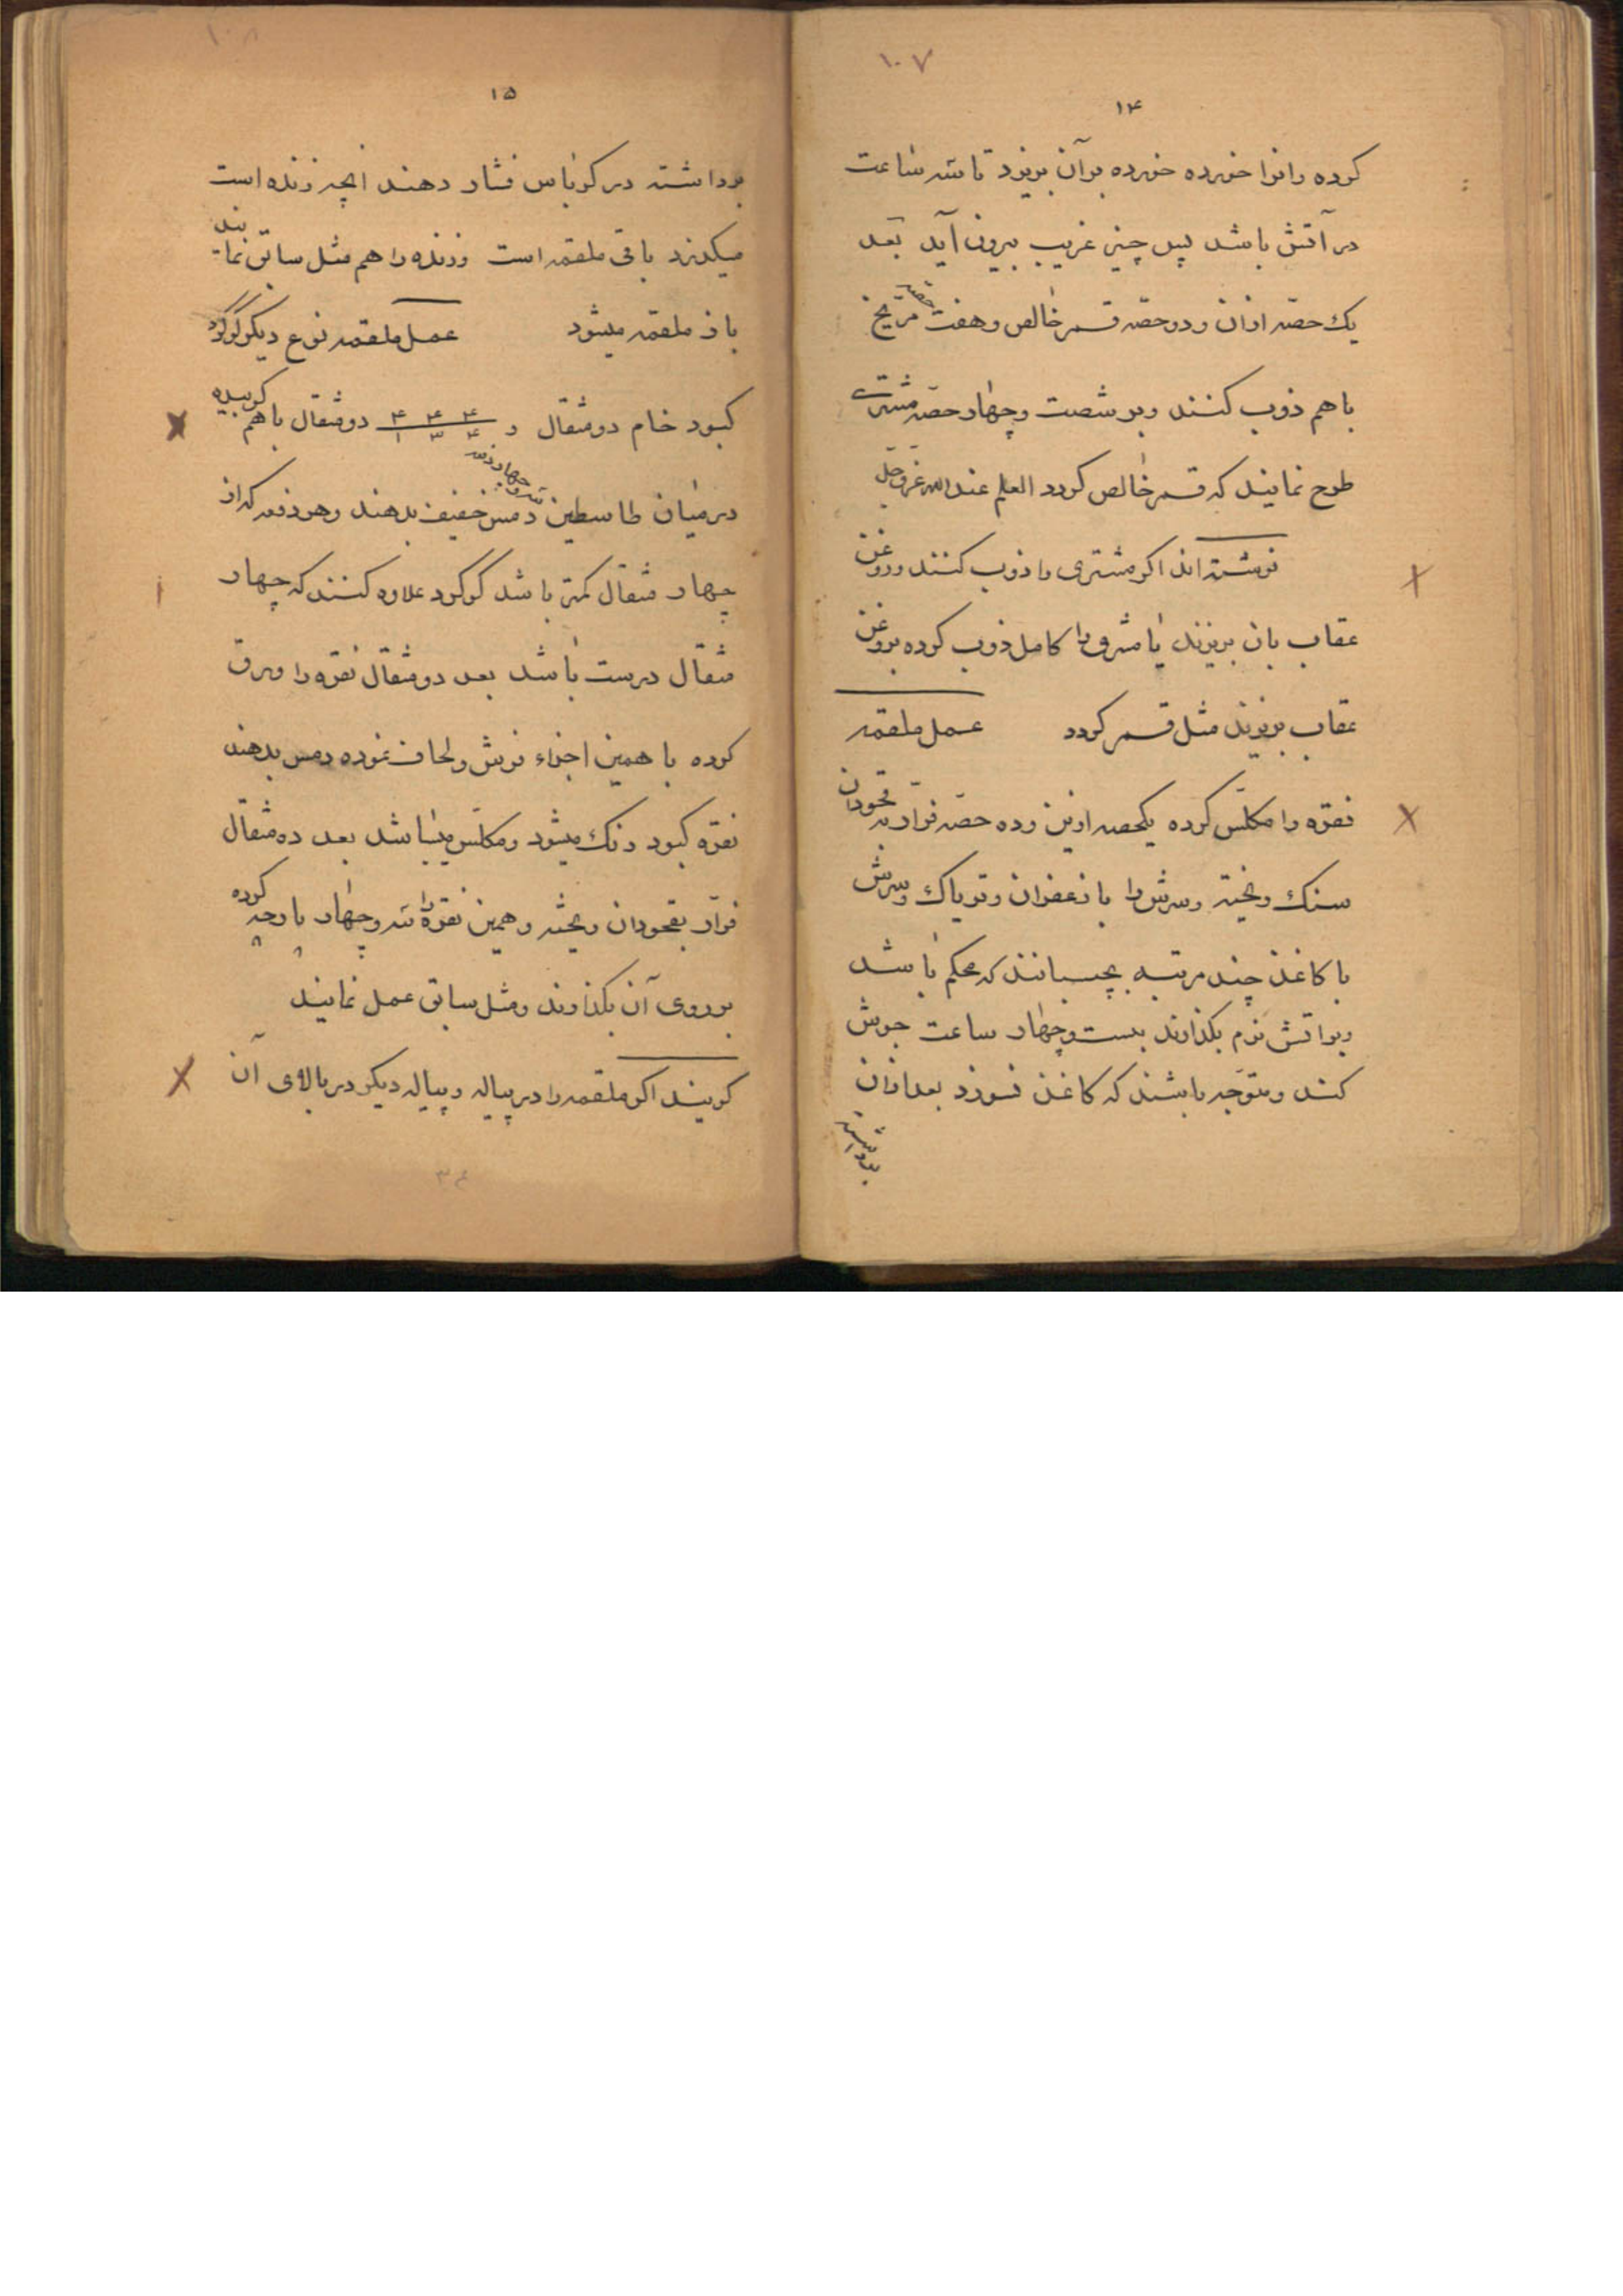 ۱۰۷
۱۴
کرده رانرا خورده خورده برآن بریزد تا سه ساعت
در آتش باشد پس چیز غریب بیرون آید بعد
یک حصه ازان و دو حصه قمر خالص و هفت حصه مریخ
باهم ذوب کنند و بر شصت و چهار حصه مشتری
طرح نمایند که قمر خالص گردد العلم عند الله عزوجل
نوشته اند اکر مشتری را ذوب کنند و روغن
عقاب بان بریزند یا مشروا کامل ذوب کرده بروغن
عقاب بریزند مثل قمر کردد عمل ملقمه
نقره را مکلس کرده یکحصه ازین و ده حصه فرار به قحودان
سنک ریخته و سرش را با زعفران و تریاک و سرش
با کاغذ چند مرتبه بچسبانند که محکم باشد
و بر اتش نرم بکذارند بیست و چهار ساعت جوش
کند و متوجه باشند که کاغذ نسوزد بعد ازان
برداشته
۱۰۸
۱۵
برداشته در کرباس فشار دهند انچه زنده است
میکذرد باقی ملقمه است و زنده را هم مثل سابق نمایند
باز ملقمه میشود عمل ملقمه نوع دیکر کوکرد
کبود خام دو مثقال و ۴ ۴ ۴ / ۱ ۳ ۴ دو مثقال باهم کوبیده
در میان طاسطین سه و چهار دفعه دمس خفیف بدهند و هر دفعه که از
چهار مثقال کمتر باشد کوکرد علاوه کنند که چهار
مثقال درست باشد بعد دو مثقال نقره را ورق
کرده با همین اجزاء فرش و لحاف نموده دمس بدهند
نقره کبود رنک میشود و مکلس میباشد بعد ده مثقال
فرار بقحودان ریخته و همین نقره را سه و چهار پارچه کرده
بر روی آن بکذارند و مثل سابق عمل نمایند
کویند اکر ملقمه را در پیاله و پیاله دیکر در بالای آن